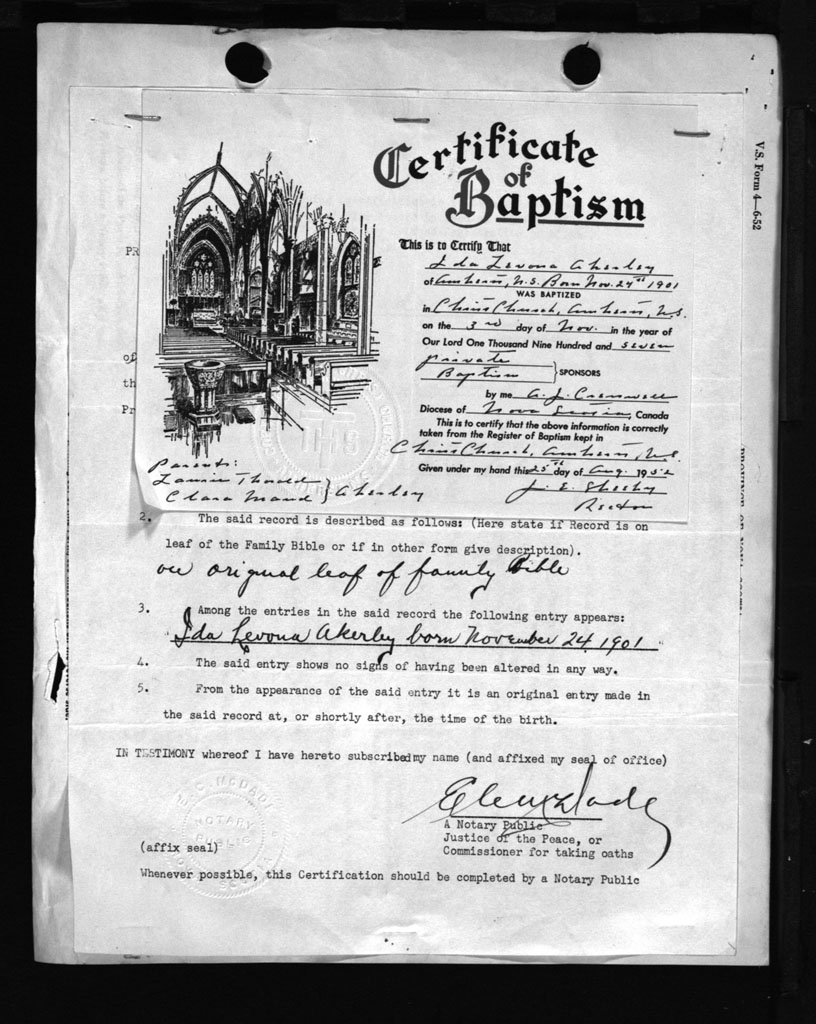 V.S. Form 4—6-52
Certificate
of
Baptism
This is to Certify That
Ida Levona Akerley
of Amherst, N.S. Born Nov. 24th 1901
WAS BAPTIZED
in Christ Church, Amherst, N.S.
on the 3rd day of Nov. in the year of
Our Lord One Thousand Nine Hundred and seven
private
Baptism } SPONSORS
by me A. J. Cresswell
Diocese of Nova Scotia, Canada
This is to certify that the above information is correctly
taken from the Register of Baptism kept in
Christ Church, Amherst, N.S.
Given under my hand this 25th day of Aug. 1952
Rector
Parents:
Clara Maud } Akerley
PR
of
th
Pr
2. The said record is described as follows: (Here state if Record is on
leaf of the Family Bible or if in other form give description).
on original leaf of family Bible
3. Among the entries in the said record the following entry appears:
Ida Levona Akerley born November 24, 1901
4. The said entry shows no signs of having been altered in any way.
5. From the appearance of the said entry it is an original entry made in
the said record at, or shortly after, the time of the birth.
IN TESTIMONY whereof I have hereto subscribed my name (and affixed my seal of office)
A Notary Public
Justice of the Peace, or
Commissioner for taking oaths
NOTARY
PUBLIC
(affix seal)
Whenever possible, this Certification should be completed by a Notary Public